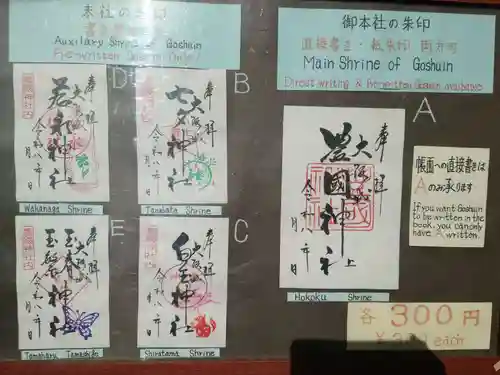 末社の朱印は
Auxiliary Shrine of Goshuin
Pre-written Goshuin Only!
D
奉拝
若永神社
令和八年
月 日
Wakanaga Shrine
B
奉拝
大阪城
七夕神社
令和八年
月 日
Tanabata Shrine
E
奉拝
玉春
玉繁
神社
令和八年
月 日
Tamaharu Tamashige
C
奉拝
大阪城
白玉神社
令和八年
月 日
Shiratama Shrine
御本社の朱印
直接書き・紙朱印 両方可
Main Shrine of Goshuin
Direct writing & Pre-written Goshuin available
A
奉拝
大阪城
豊國神社
上
令和八年
月 日
Hokoku Shrine
帳面への直接書きは
Aのみ承ります
If you want Goshuin
to be written in the
book, you can only
have A written.
各 300円
¥300 each